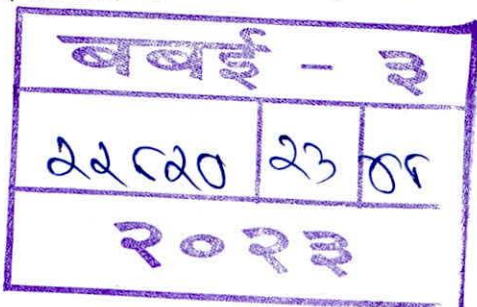 बबई - ३
२२८२० २३ ४८
२०२३